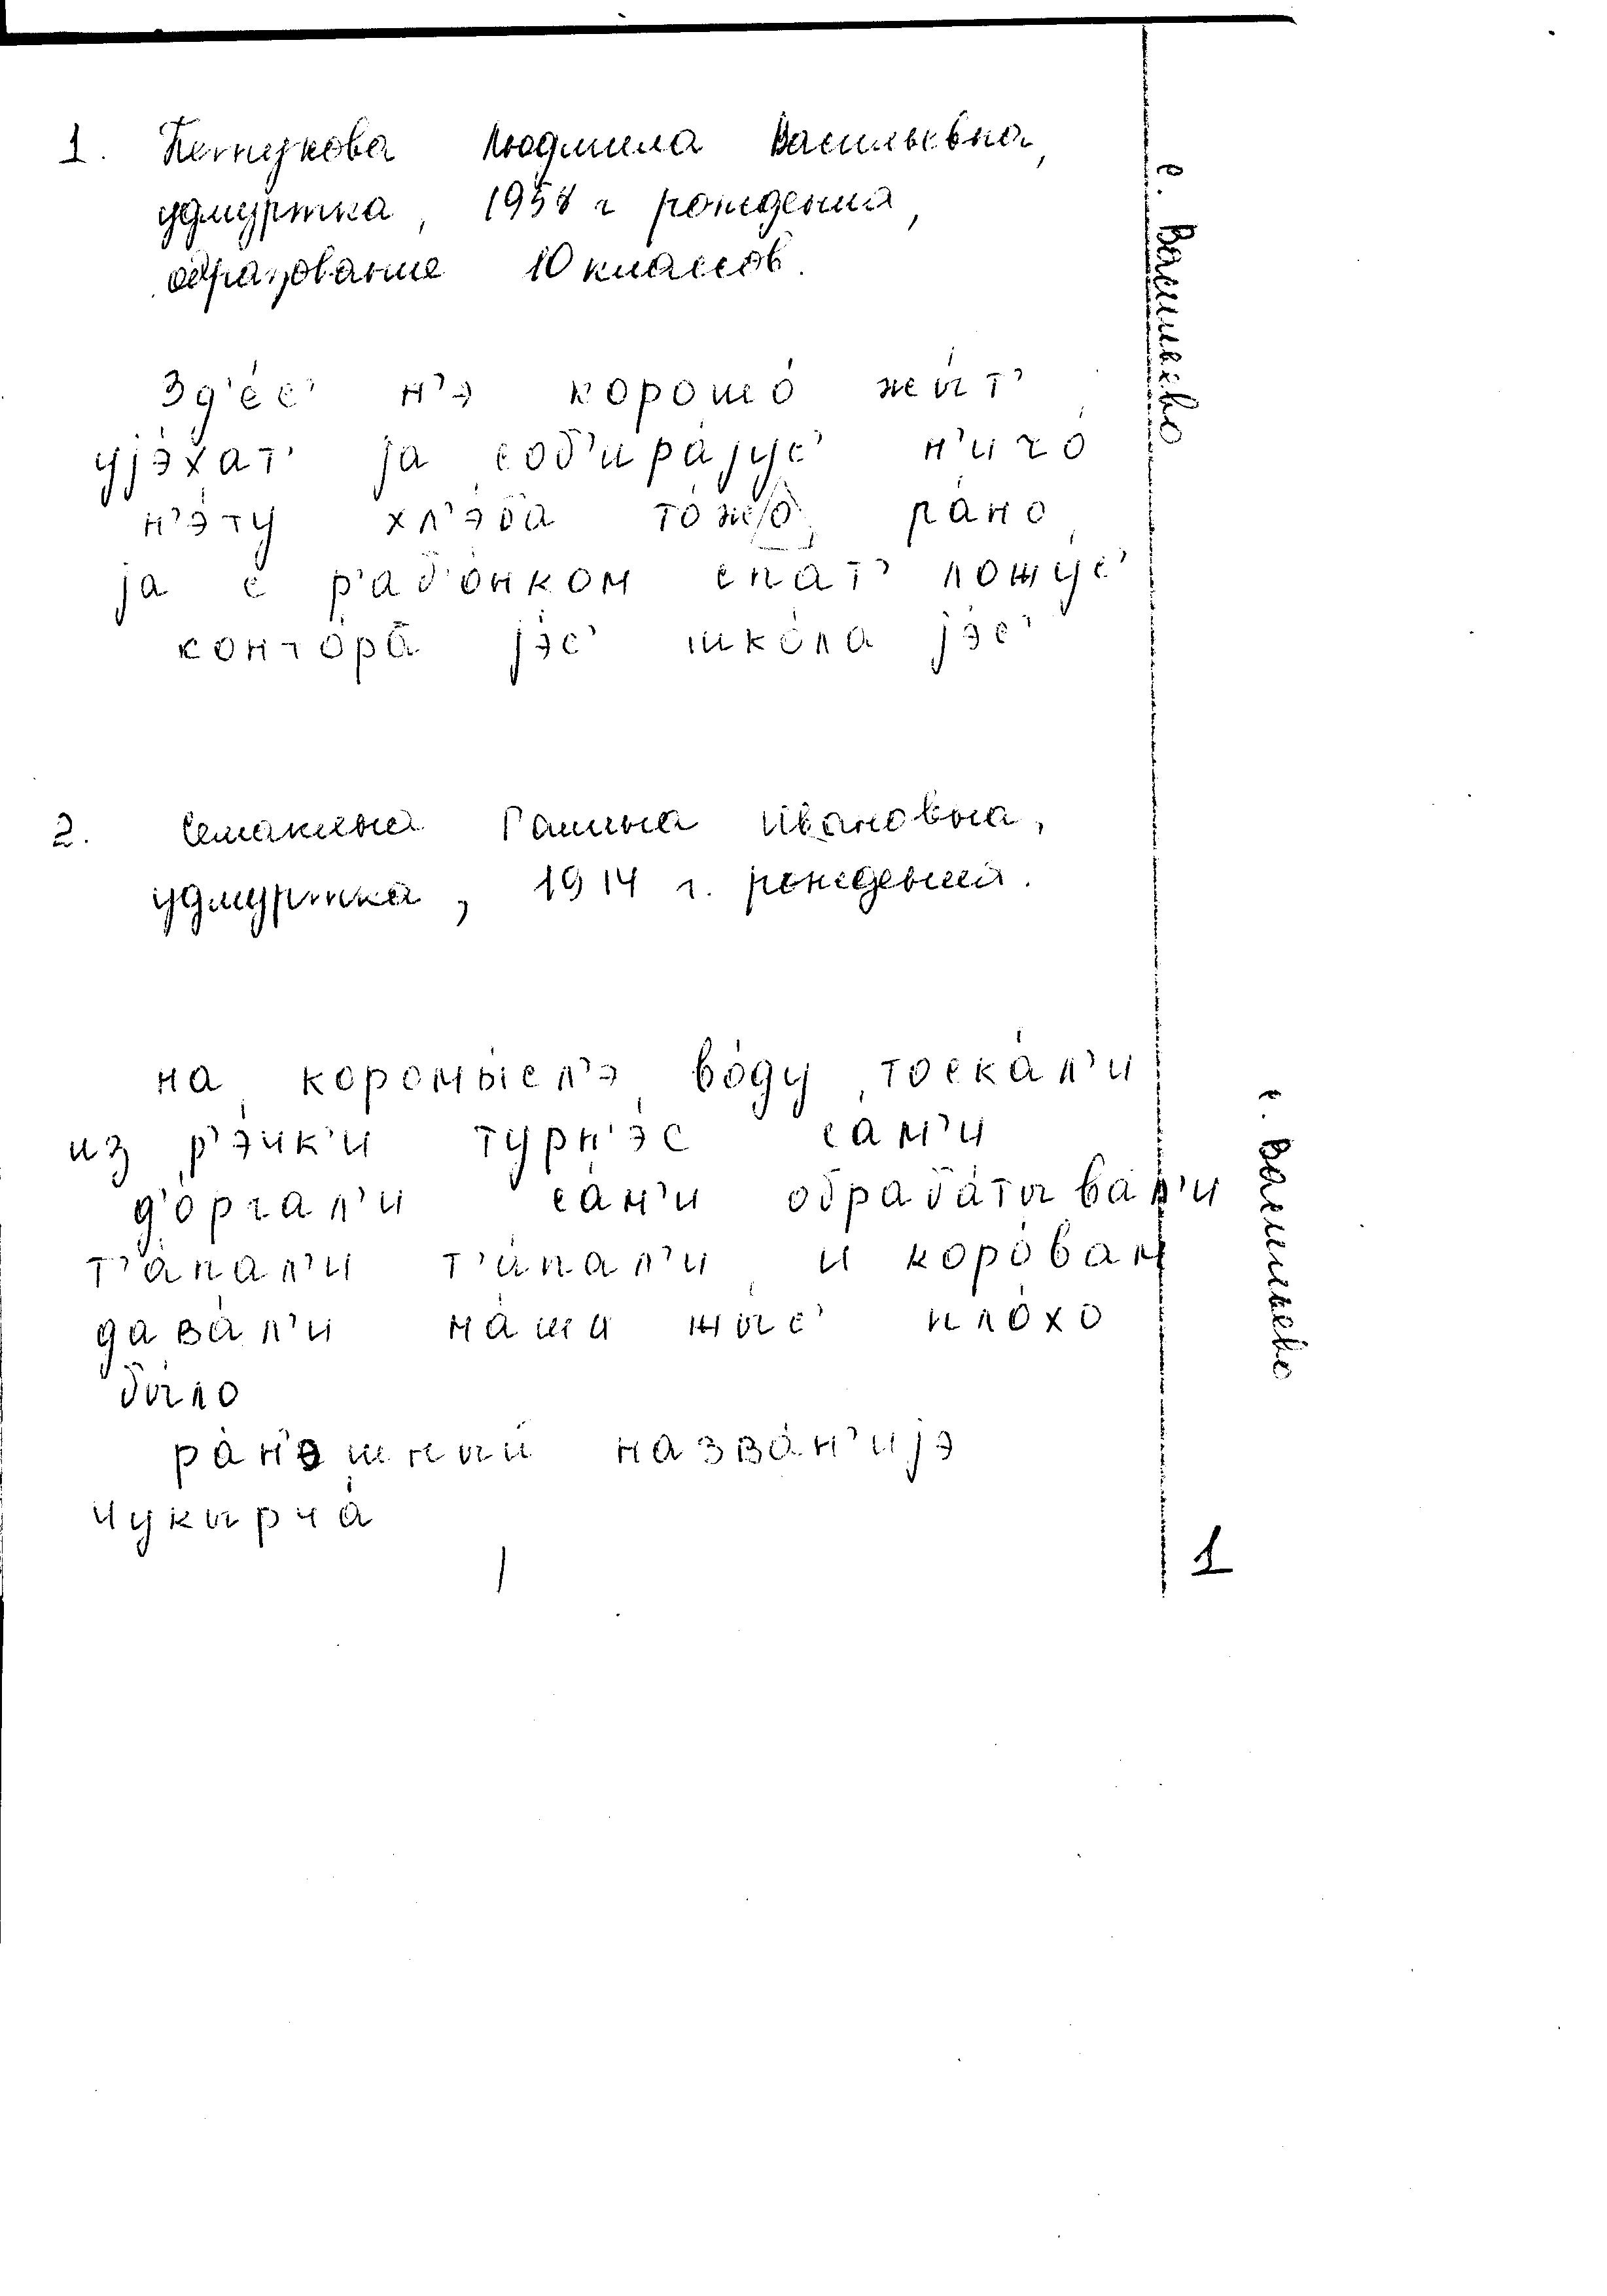 1. Петукова Людмила Васильевна,
удмуртка, 1958 г рождения,
образование 10 классов.
с. Васильево
Зд'е́с' н'э хорошо́ жы́т'
уjэ́хат' ja соб'ира́jус' н'ичо́
н'э́ту хл'э́ба то́жо ра́но
ja с р'аб'о́нком спат' ложу́с'
конто́ра jэс' шко́ла jэс'
2. Семакина Галина Ивановна,
удмуртка, 1914 г. рождения.
на коромы́сл'э во́ду тоска́л'и
из р'э́чк'и турн'э́с са́м'и
д'о́ргал'и са́м'и обраба́тывал'и
т'а́пал'и т'а́пал'и и коро́вам
дава́л'и на́ша жыс' пло́хо
бы́ло
ра́н'эшный назва́н'иjэ
Чукырча́
с. Васильево
1